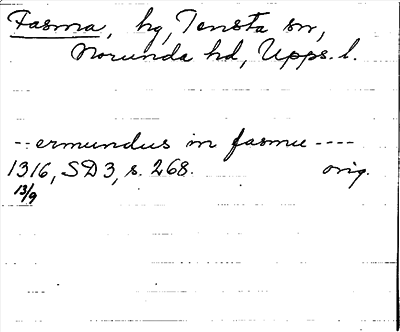 Fasma, hg, Tensta sn,
Norunda hd, Upps. l.
-- ermundus in fasmu ----
1316, SD 3, s. 268. orig.
13/9